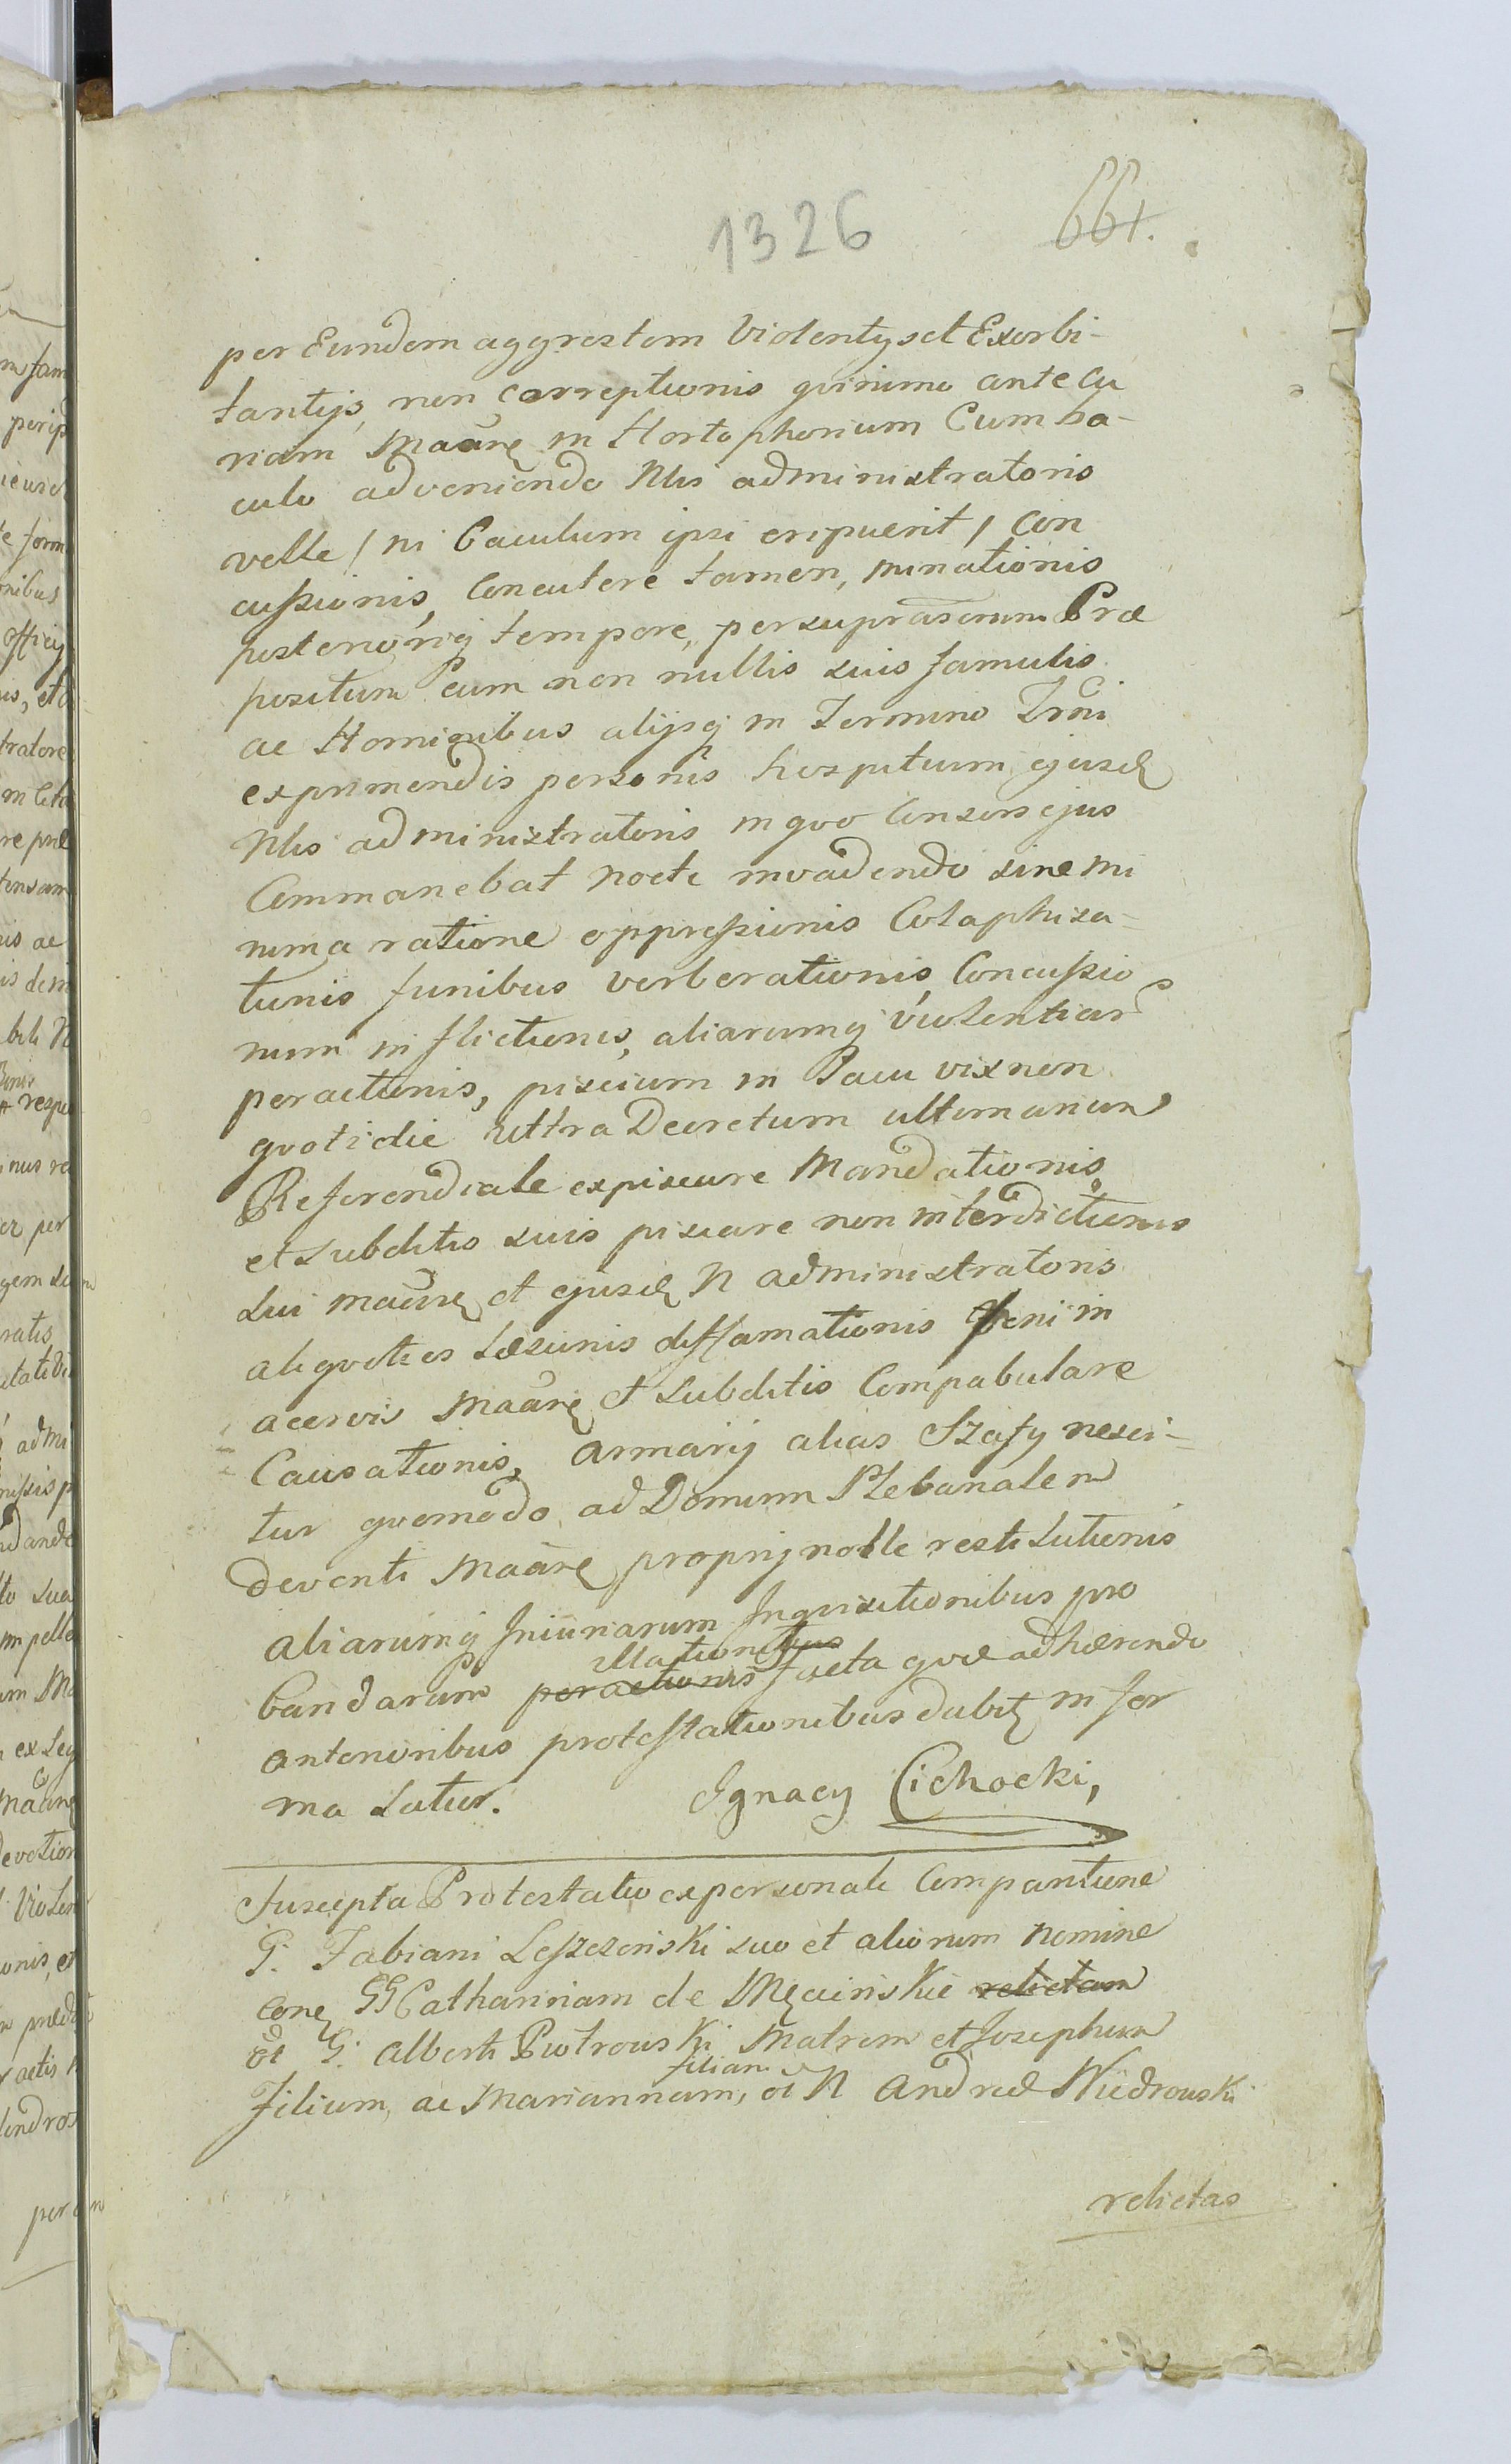 1326 661.
per Eundem aggrestem Violentys et Exorbi-
tantys, non correptionis quinimo ante Cu
riam Maarę in Hortophorium Cum ba-
culo adveniendo Nlis administratoris
velle / ni baculum ipsi eripuerit / con
cussionis, Concutere tamen, minationis
posterioriq tempore, per supra Præ
positum cum non nullis suis famulis
ac Hominibus alijsq in Termino Trni
exprimendis personis hospitium ejusd
Nlis administratoris in quo Consors ejus
Commanebat nocte invadendo sine mi
nima ratione oppressionis Colaphiza-
tionis funibus verberationis Concussio
num inflictionis, aliarumq violentiar
peractionis, piscium in Lacu vix non
quotidie ultra Decretum ultimarium
Referendiale expiscare Mandationis
et subditis suis piscare non interdictionis
sui maarę et ejusd N administratoris
aliquoties Læsionis diffamationis fæni in
acervis Maarę et subditis Compabulare
Causationis, armarij alias Szafy nesci-
tur quomodo ad Domum Plebanalem
deventi Maarę proprij nolle restitutionis
aliarumq Iniuriarum Inquisitionibus pro
bandarum peractionis illationibus facta quæ adhærendo
anterioribus protestationibus dabit in for
ma Latior. Ignacy Cichocki,
Suscepta Protestatio ex personali Comparitione
G. Fabiani Leszczenski suo et aliorum nomine
conę GG Catharinam de Męcinskie relictam
ol G. Alberti Piotrowski Matrem et Josephum
Filium, ac Mariannam, filiam ol N Andreæ Niedrowski
relictas